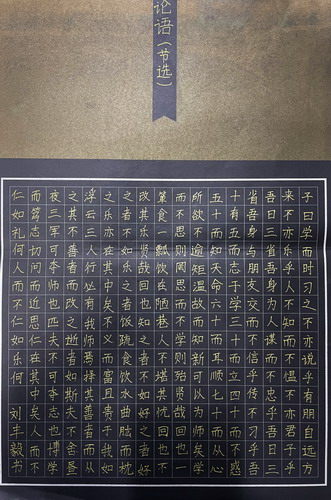 论语(节选)
子曰学而时习之不亦说乎有朋自远方
来不亦乐乎人不知而不愠不亦君子乎
吾日三省吾身为人谋而不忠乎吾日三
省吾身与朋友交而不信乎传不习乎吾
十有五而志于学三十而立四十而不惑
五十而知天命六十而耳顺七十而从心
所欲不逾矩温故而知新可以为师矣学
而不思则罔思而不学则殆贤哉回也一
箪食一瓢饮在陋巷人不堪其忧回也不
改其乐贤哉回也知之者不如好之者好
之者不如乐之者饭疏食饮水曲肱而枕
之乐亦在其中矣不义而富且贵于我如
浮云三人行必有我师焉择其善者而从
之其不善者而改之逝者如斯夫不舍昼
夜三军可夺帅也匹夫不可夺志也博学
而笃志切问而近思仁在其中矣人而不
仁如礼何人而不仁如乐何 刘丰毅书